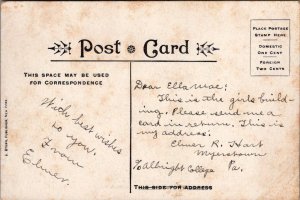 Post Card
PLACE POSTAGE
STAMP HERE
DOMESTIC
ONE CENT
FOREIGN
TWO CENTS
THIS SPACE MAY BE USED
FOR CORRESPONDENCE
With best wishes
to you.
From
Elmer.
Dear Ella Mae:
This is the girls build-
ing. Please send me a
card in return. This is
my address.
Elmer R. Hart
Myerstown
Albright College Pa.
THIS SIDE FOR ADDRESS